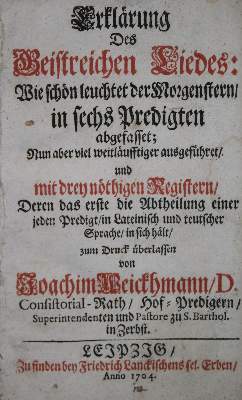 Erklärung
Des
Geistreichen Liedes:
Wie schön leuchtet der Morgenstern/
in sechs Predigten
abgefasset;
Nun aber viel weitläufftiger ausgeführet/
und
mit drey nöthigen Registern/
Deren das erste die Abtheilung einer
jeden Predigt/ in Lateinisch und teutscher
Sprache/ in sich hält/
zum Druck überlassen
von
Joachim Weickhmann/ D.
Consistorial-Rath/ Hof-Predigern/
Superintendenten und Pastore zu S. Barthol.
in Zerbst.
LEIPZIG/
Zu finden bey Friedrich Lanckischens sel. Erben/
Anno 1704.